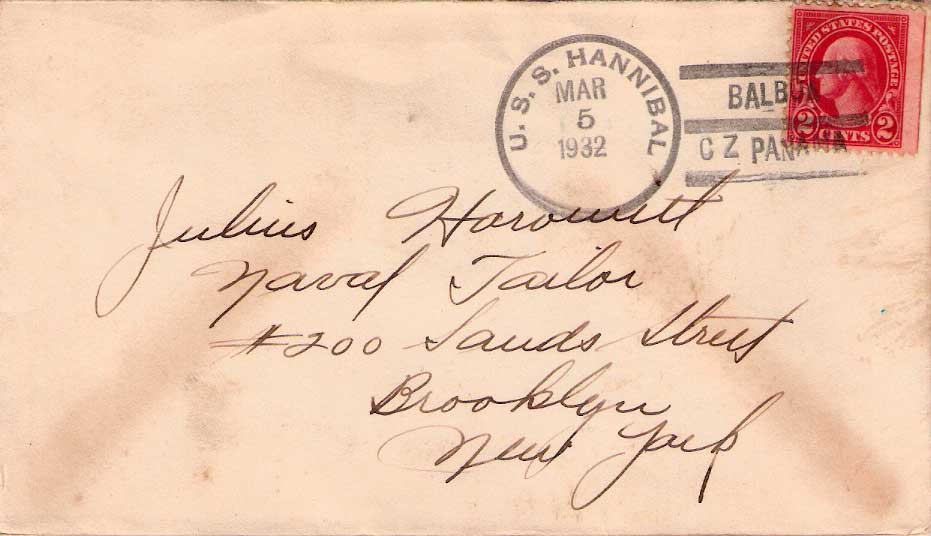 U. S. S. HANNIBAL
MAR
5
1932
BALBOA
C Z PANAMA
UNITED STATES POSTAGE
2 CENTS 2
Julius Horowitt
Naval Tailor
#200 Sands Street
Brooklyn
New York